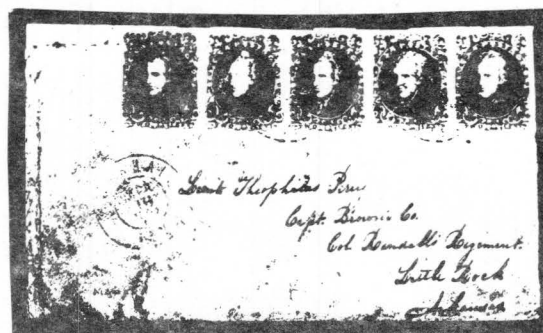 Lieut Theophilus Perry
Capt. Brown's Co.
Col Randall's Regiment.
Little Rock
Arkansas